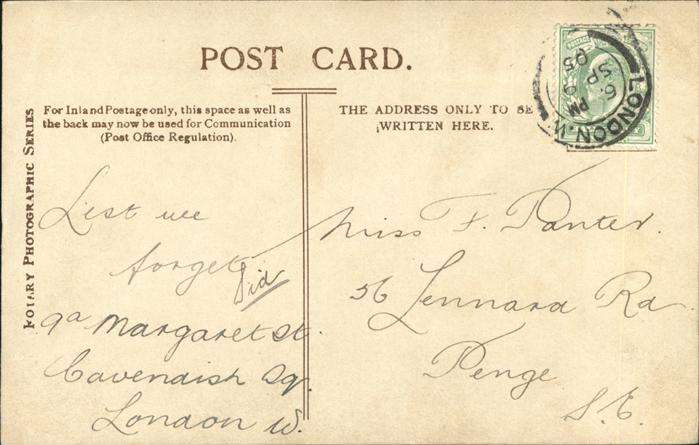 POST CARD.
For Inland Postage only, this space as well as
the back may now be used for Communication
(Post Office Regulation).
THE ADDRESS ONLY TO BE
WRITTEN HERE.
ROTARY PHOTOGRAPHIC SERIES
LONDON.W.
9 PM
SP 6
05
Lest we
forget
Did
9a Margaret St.
Cavendish Sq.
London W.
Miss F. Panter.
56 Lennard Rd
Penge
S.E.